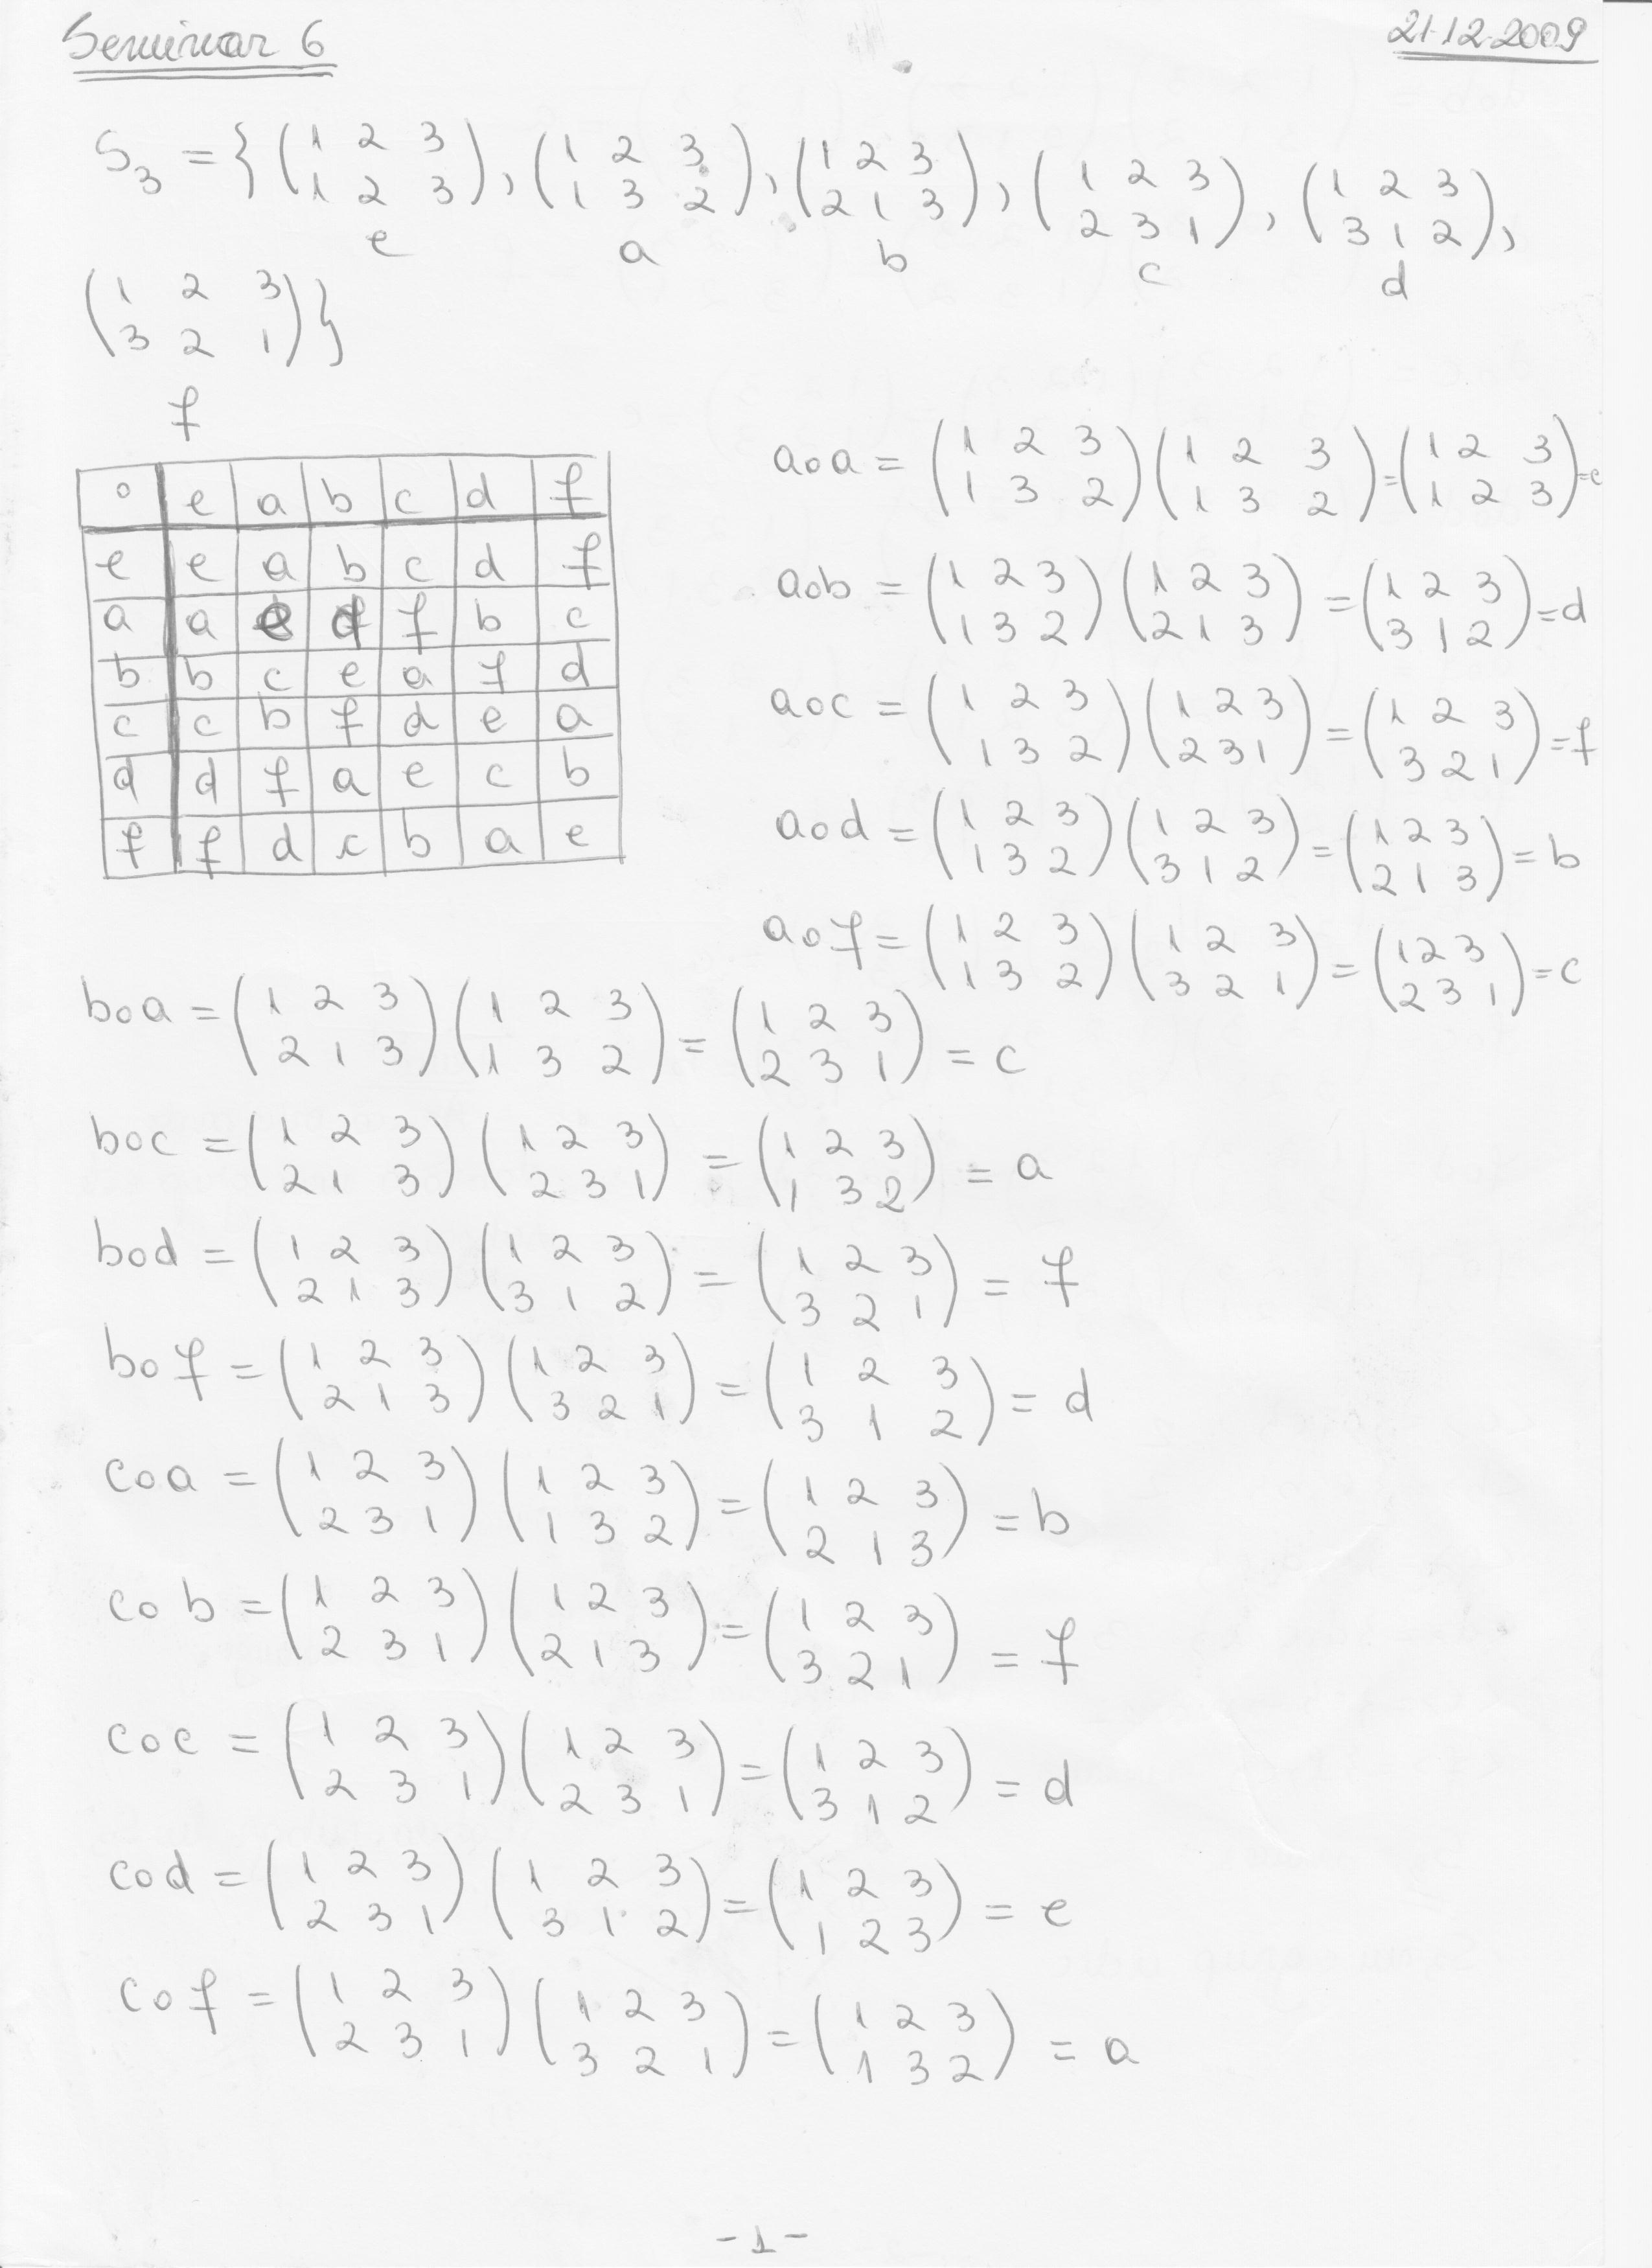 Seminar 6 21.12.2009
S₃ = { (1 2 3 / 1 2 3), (1 2 3 / 1 3 2), (1 2 3 / 2 1 3), (1 2 3 / 2 3 1), (1 2 3 / 3 1 2),
e a b c d
(1 2 3 / 3 2 1) }
f
∘ e a b c d f
e e a b c d f
a a e d f b c
b b c e a f d
c c b f d e a
d d f a e c b
f f d c b a e
a∘a = (1 2 3 / 1 3 2)(1 2 3 / 1 3 2) = (1 2 3 / 1 2 3) = e
a∘b = (1 2 3 / 1 3 2)(1 2 3 / 2 1 3) = (1 2 3 / 3 1 2) = d
a∘c = (1 2 3 / 1 3 2)(1 2 3 / 2 3 1) = (1 2 3 / 3 2 1) = f
a∘d = (1 2 3 / 1 3 2)(1 2 3 / 3 1 2) = (1 2 3 / 2 1 3) = b
a∘f = (1 2 3 / 1 3 2)(1 2 3 / 3 2 1) = (1 2 3 / 2 3 1) = c
b∘a = (1 2 3 / 2 1 3)(1 2 3 / 1 3 2) = (1 2 3 / 2 3 1) = c
b∘c = (1 2 3 / 2 1 3)(1 2 3 / 2 3 1) = (1 2 3 / 1 3 2) = a
b∘d = (1 2 3 / 2 1 3)(1 2 3 / 3 1 2) = (1 2 3 / 3 2 1) = f
b∘f = (1 2 3 / 2 1 3)(1 2 3 / 3 2 1) = (1 2 3 / 3 1 2) = d
c∘a = (1 2 3 / 2 3 1)(1 2 3 / 1 3 2) = (1 2 3 / 2 1 3) = b
c∘b = (1 2 3 / 2 3 1)(1 2 3 / 2 1 3) = (1 2 3 / 3 2 1) = f
c∘c = (1 2 3 / 2 3 1)(1 2 3 / 2 3 1) = (1 2 3 / 3 1 2) = d
c∘d = (1 2 3 / 2 3 1)(1 2 3 / 3 1 2) = (1 2 3 / 1 2 3) = e
c∘f = (1 2 3 / 2 3 1)(1 2 3 / 3 2 1) = (1 2 3 / 1 3 2) = a
- 1 -